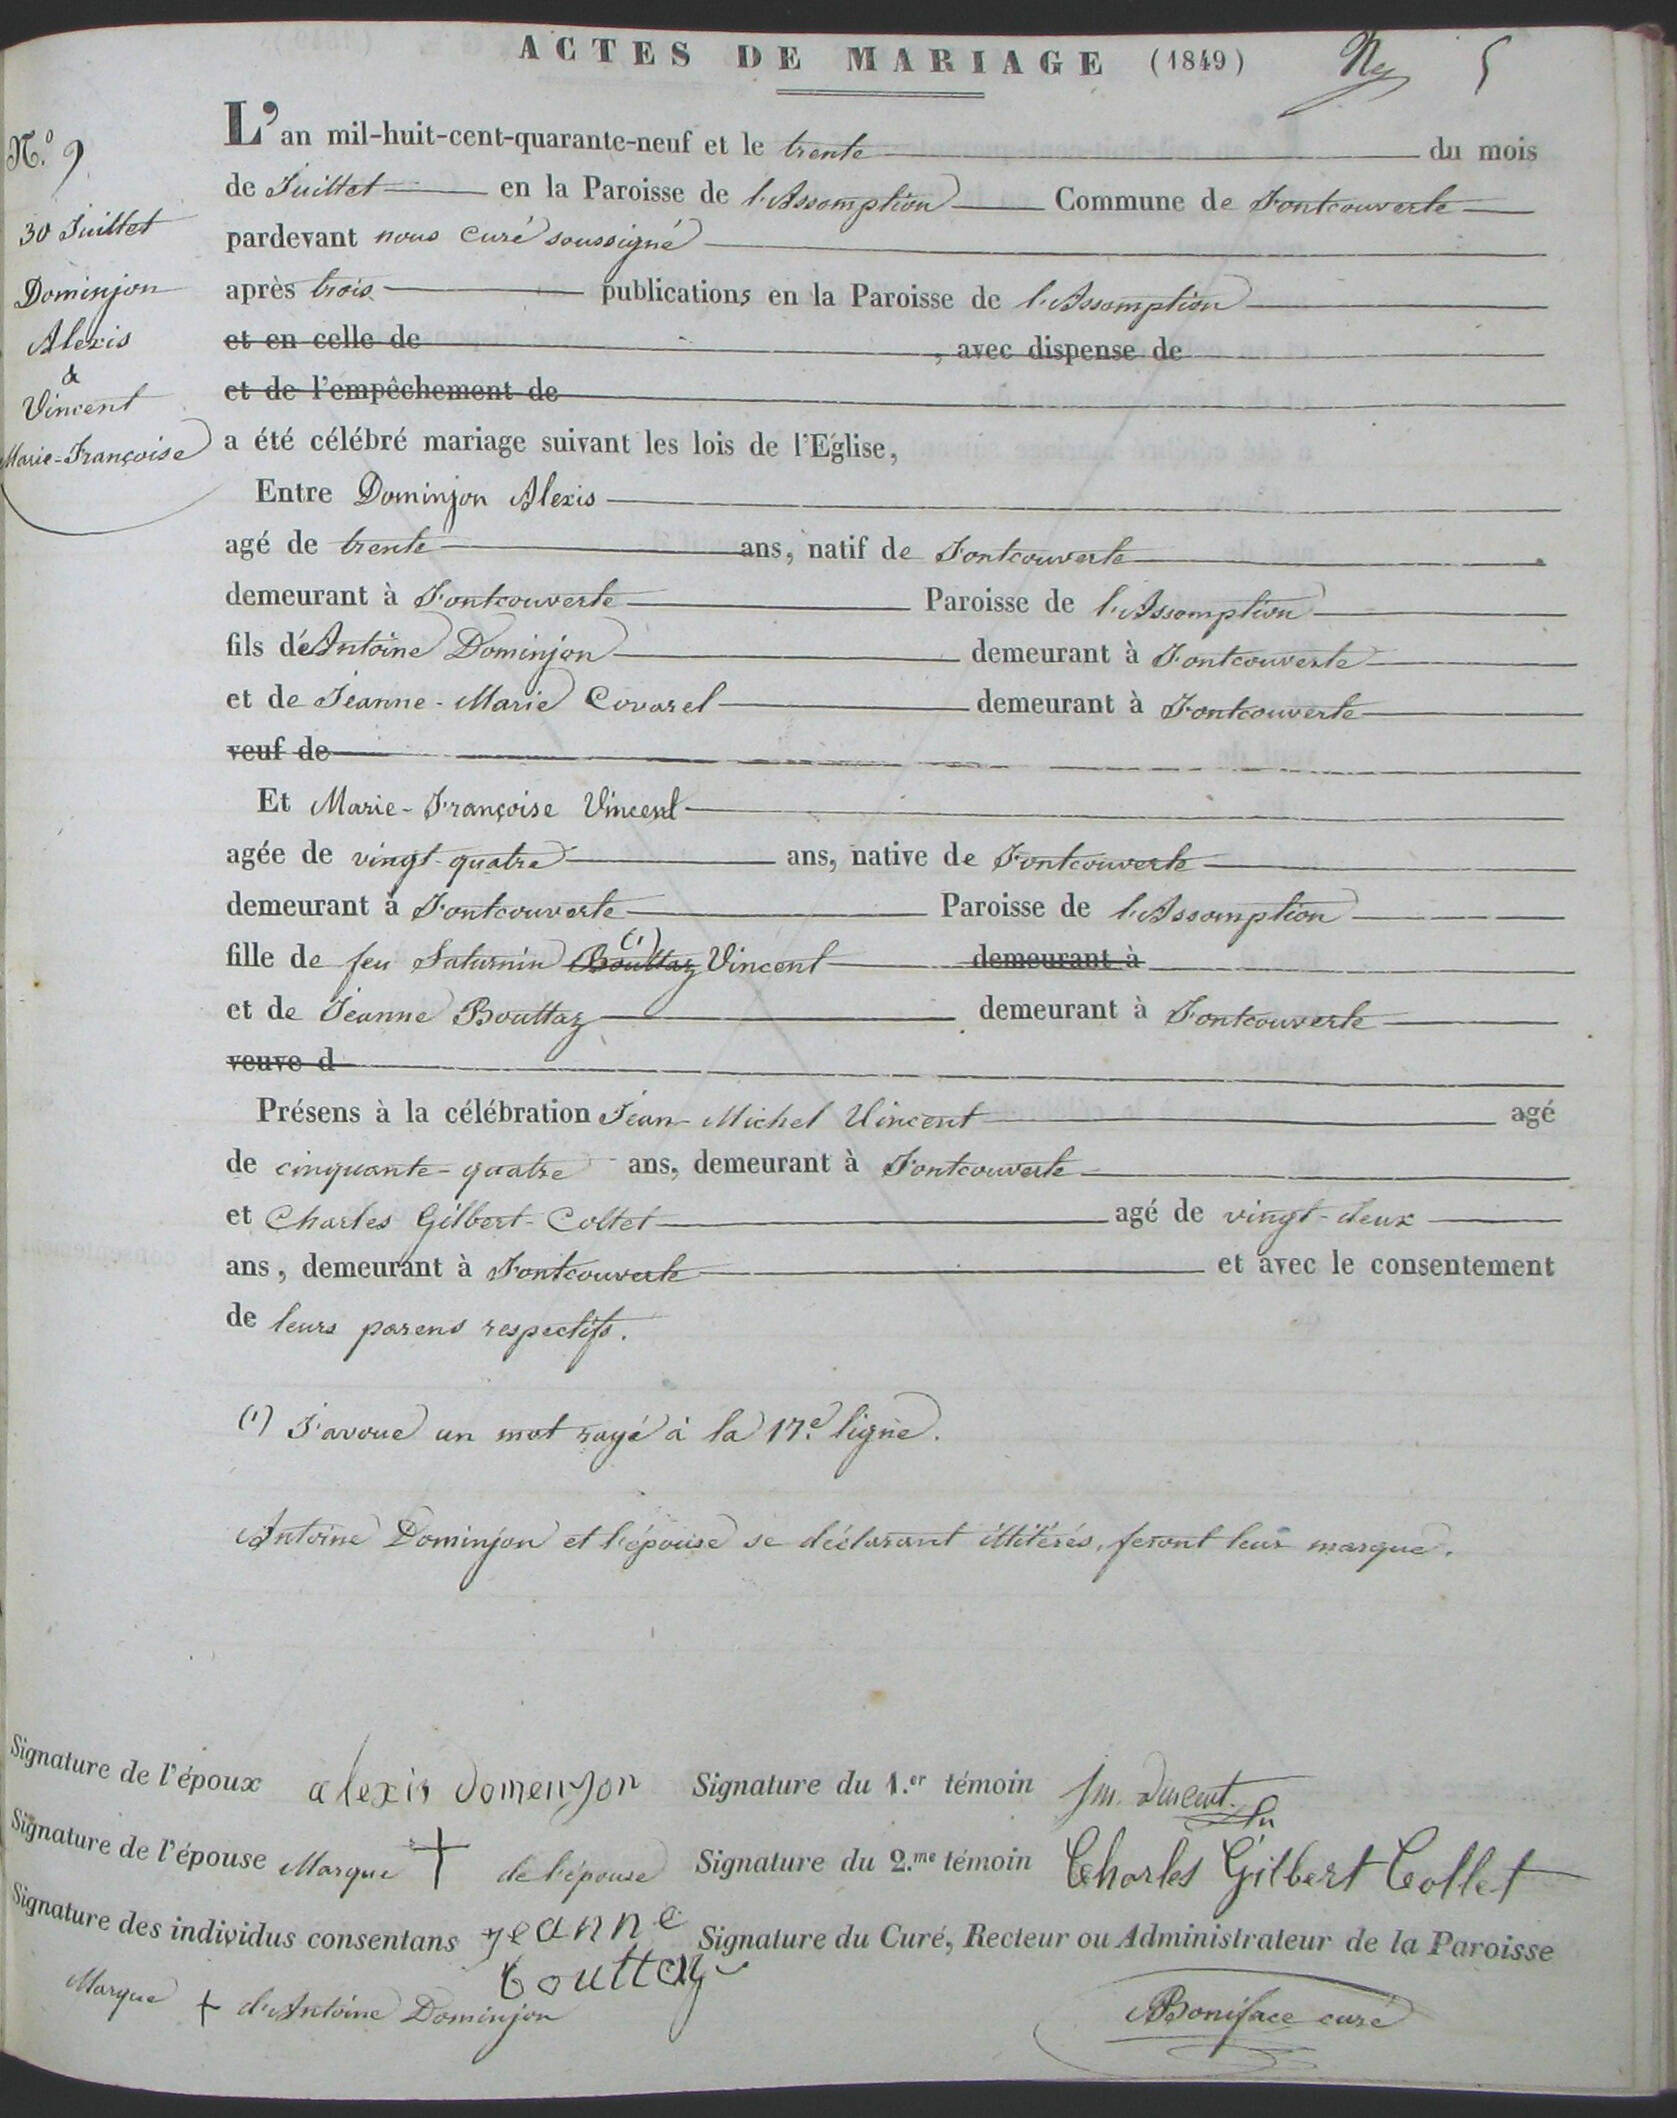 ACTES DE MARIAGE (1849) 5
N.º 9
30 Juillet
Dominjon
Alexis
&
Vincent
Marie-Françoise
L'an mil-huit-cent-quarante-neuf et le trente du mois
de Juillet en la Paroisse de l'Assomption Commune de Fontcouverte
pardevant nous curé soussigné
après trois publications en la Paroisse de l'Assomption
et en celle de , avec dispense de
et de l'empêchement de
a été célébré mariage suivant les lois de l'Eglise,
Entre Dominjon Alexis
agé de trente ans, natif de Fontcouverte
demeurant à Fontcouverte Paroisse de l'Assomption
fils d'Antoine Dominjon demeurant à Fontcouverte
et de Jeanne-Marie Covarel demeurant à Fontcouverte
veuf de
Et Marie-Françoise Vincent
agée de vingt-quatre ans, native de Fontcouverte
demeurant à Fontcouverte Paroisse de l'Assomption
fille de feu Saturnin Bouttaz (1) Vincent demeurant à
et de Jeanne Bouttaz demeurant à Fontcouverte
veuve d
Présens à la célébration Jean-Michel Vincent agé
de cinquante-quatre ans, demeurant à Fontcouverte
et Charles Gilbert-Collet agé de vingt-deux
ans, demeurant à Fontcouverte et avec le consentement
de leurs parens respectifs.
(1) J'avoue un mot rayé à la 17e ligne.
Antoine Dominjon et l'épouse se déclarant illitérés, feront leur marque.
Signature de l'époux alexis domenjon Signature du 1.er témoin Jm. Vincent
Signature de l'épouse Marque + de l'épouse Signature du 2.me témoin Charles Gilbert Collet
Signature des individus consentans jeanne bouttaz Signature du Curé, Recteur ou Administrateur de la Paroisse
Marque + d'Antoine Dominjon Boniface curé